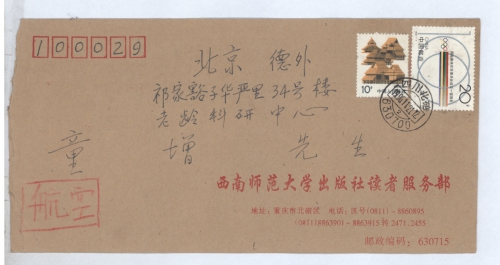 100029
北京 德外
祁家豁子华严里34号楼
老龄科研中心
童增 先生
航空
西南师范大学出版社读者服务部
地址：重庆市北碚区 电话：区号(0811)－8860895
(0811)8863901－8863915转2471.2455
邮政编码：630715
10分
20